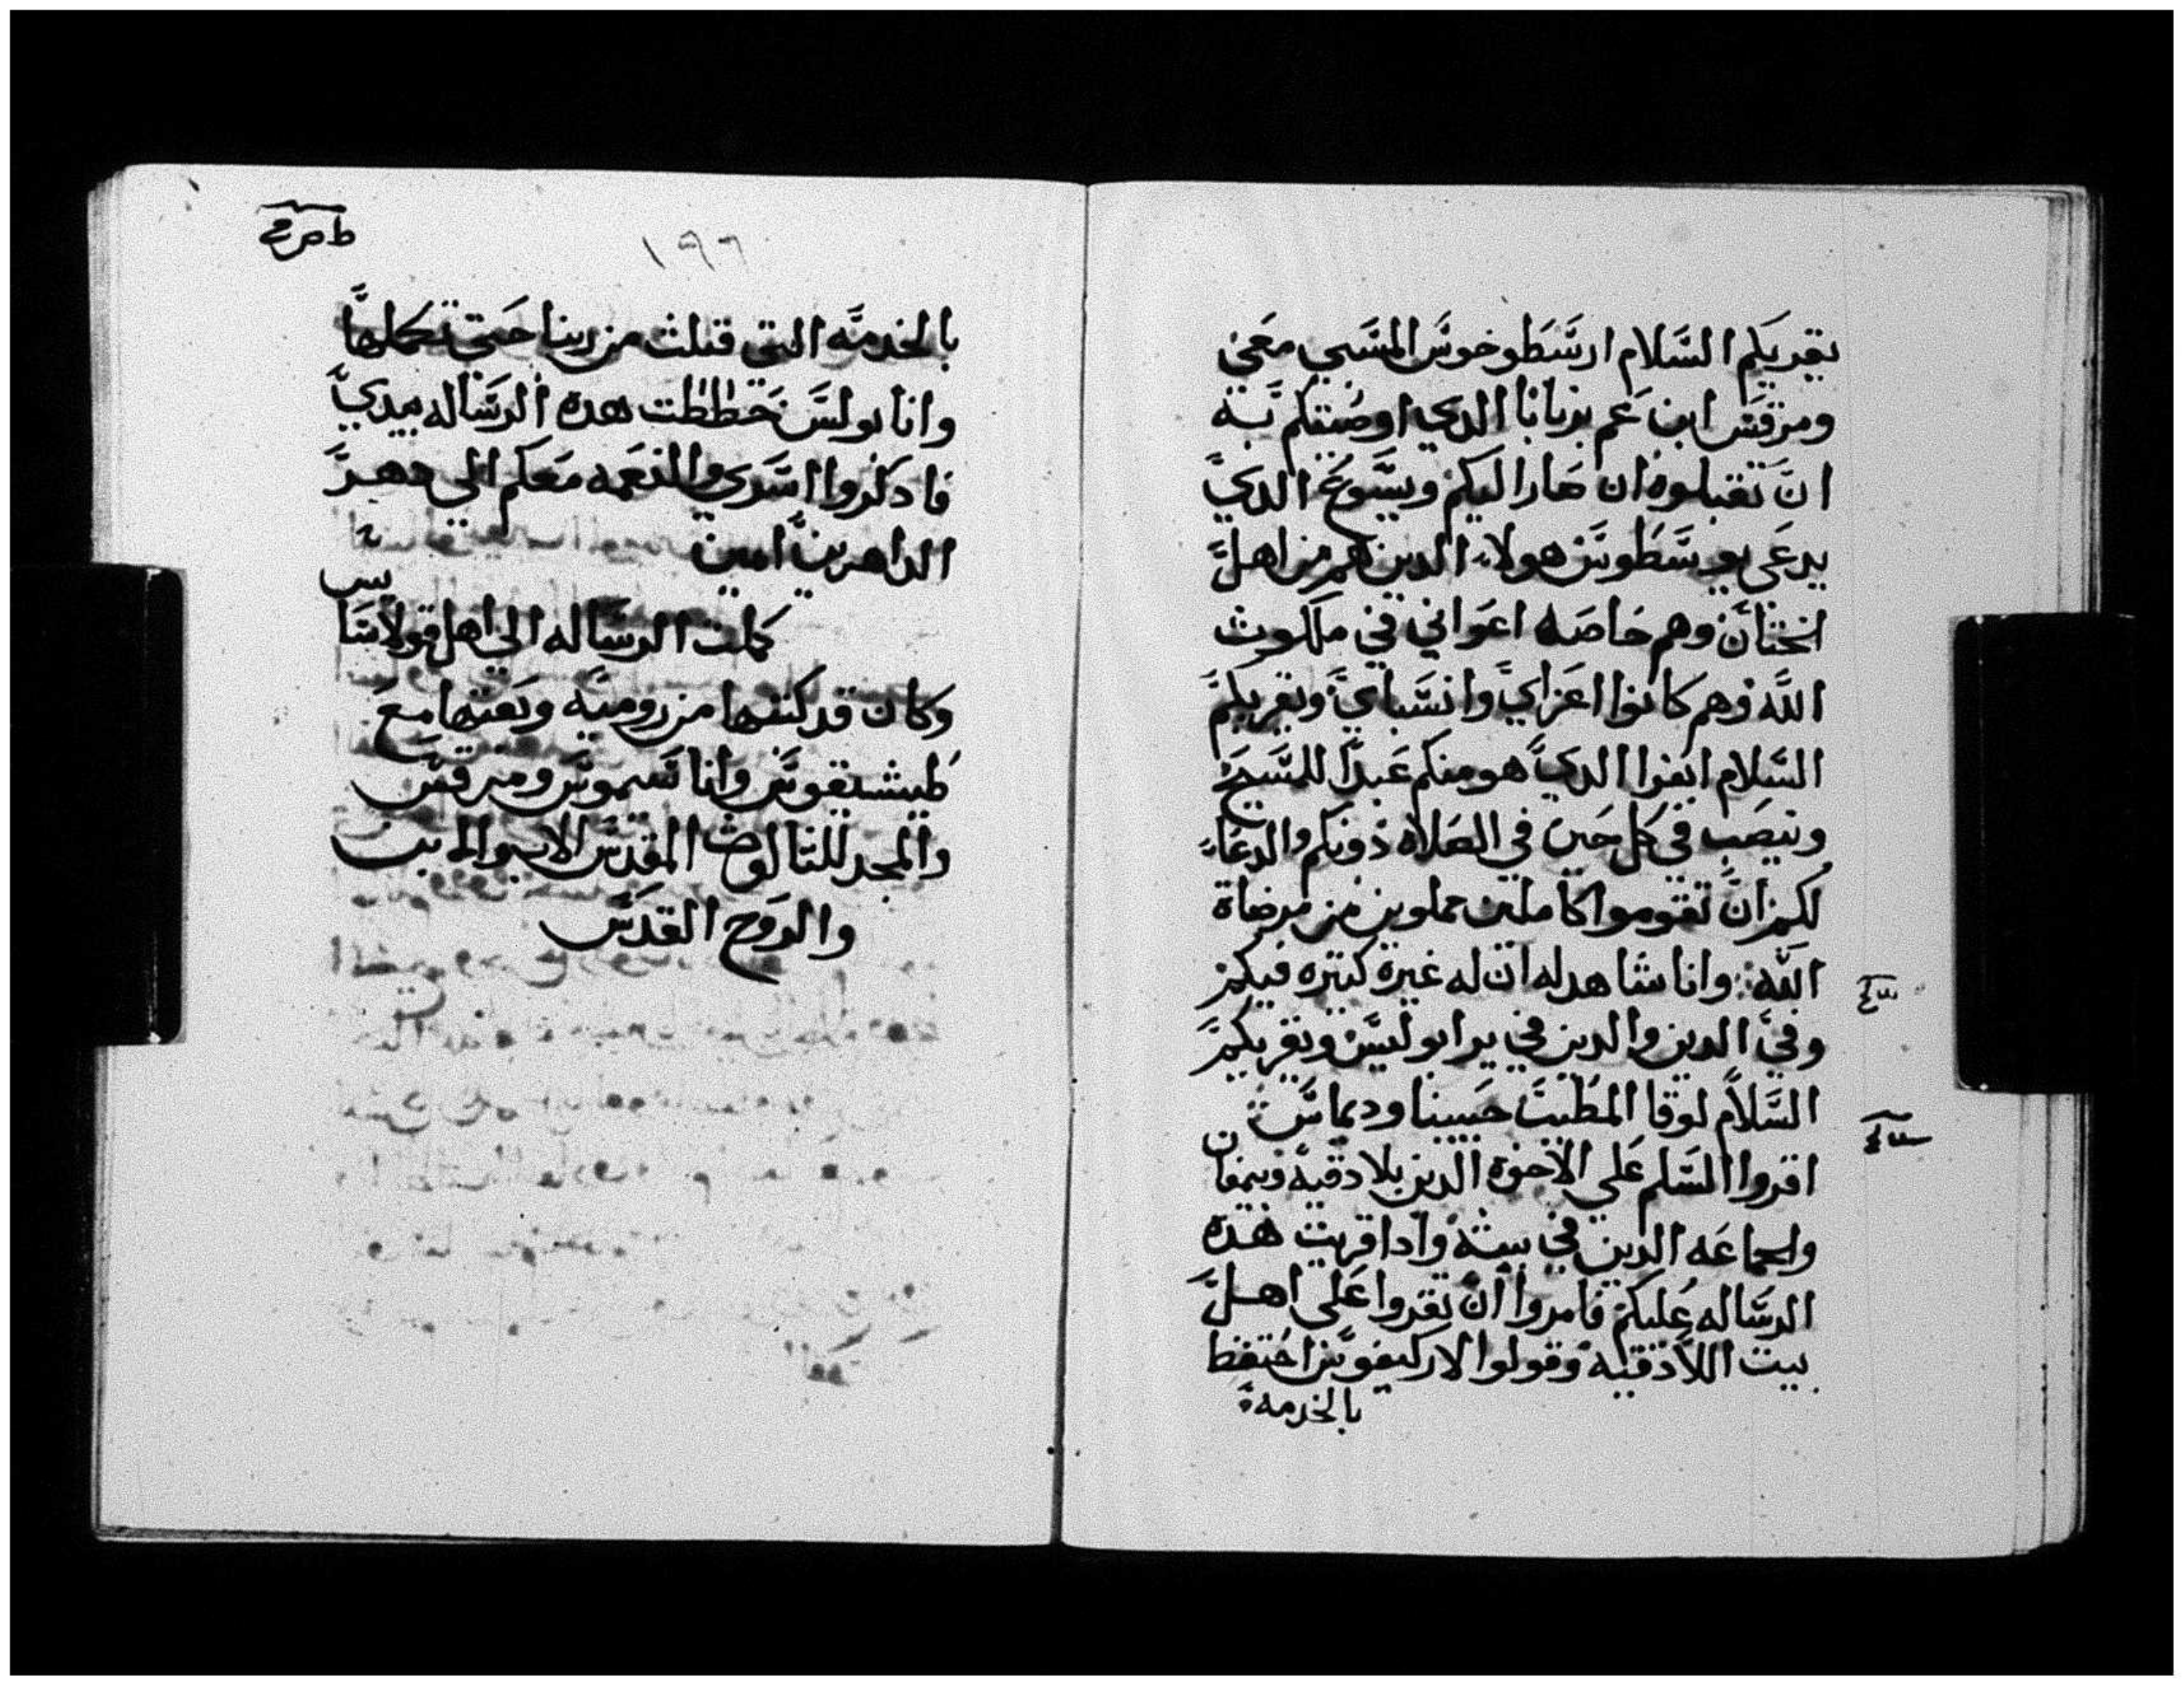 يقريكم السلام ارسطوخوس المسبي معي
ومرقس ابن عم برنابا الدي اوصيتكم به
ان تقبلوه ان صار اليكم ويسوع الدي
يدعى يوسطوس هولاء الدين هم من اهل
الختان وهم خاصه اعواني في ملكوت
الله وهم كانوا اعزاي وانسباي ويقريكم
السلام ابفرا الدي هو منكم عبدا للمسيح
وينصب في كل حين في الصلاه دونكم والدعاء
لكم ان تقوموا كاملين مملوين من مرضاة
الله وانا شاهد له ان له غيرة كتيره فيكم
وفي الدين والدين في يرابوليس ويقريكم
السلام لوقا المطبب حبيبنا وديماس
اقروا السلم على الاخوه الدين بلادقيه ونمفان
والجماعه الدين في بيته وادا قريت هده
الرساله عليكم فامروا ان تقروا على اهل
بيت اللادقيه وقولوا لاركيفوس احتفظ
بالخدمه
١٩٦
بالخدمه التي قبلت من ربنا حتى تكملها
وانا بولس خططت هده الرساله بيدي
فادكروا اسري والنعمه معكم الى دهر
الداهرين امين
كملت الرساله الى اهل قولاسايس
وكان قد كتبها من روميه وبعتها مع
طيشيقوس واناسيموس ومرقس
والمجد للتالوت المقدس الاب والابن
والروح القدس